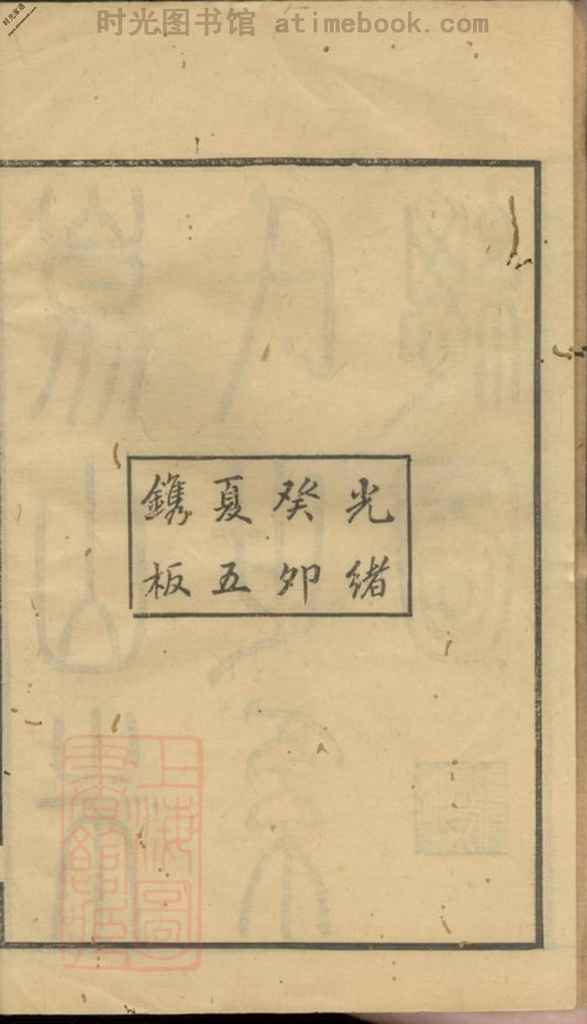 时光图书馆 atimebook.com
光緒
癸卯
夏五
鐫板
上海図
書館藏